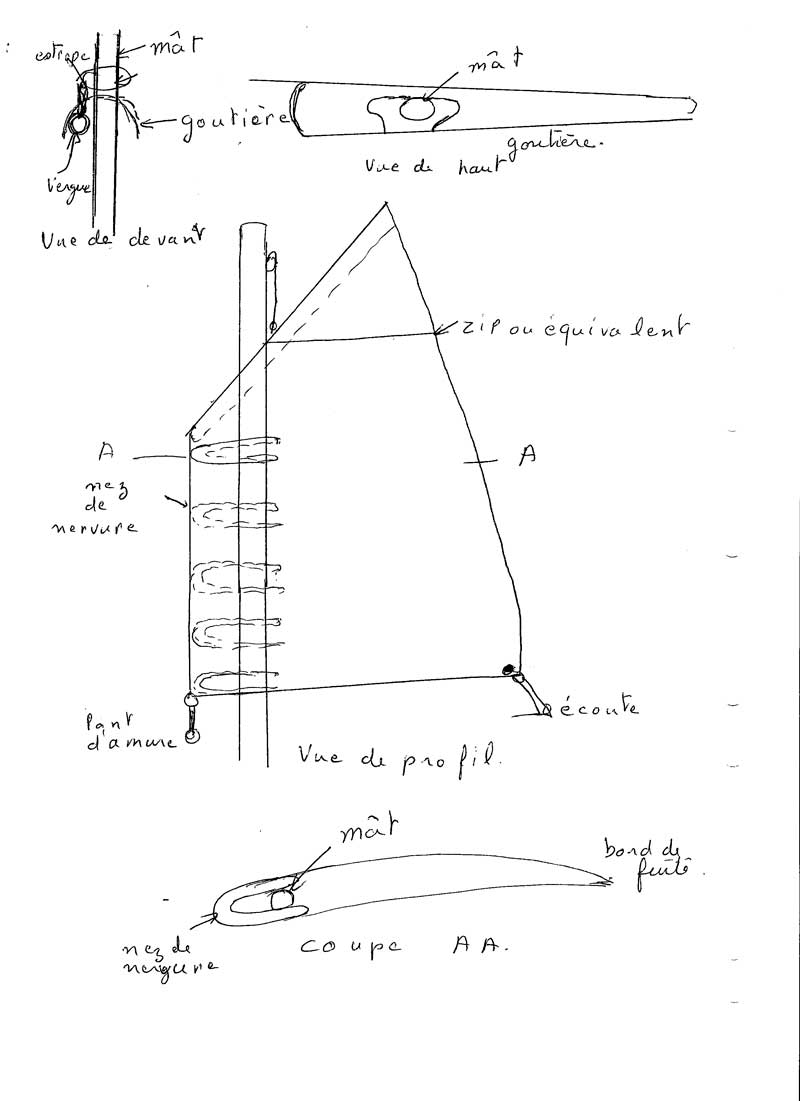 estrope
mât
goutière
Vergue
Vue de devant
mât
goutière.
Vue de haut
zip ou équivalent
A
A
nez
de
nervure
Pant
d'amure
écoute
Vue de profil.
mât
bord de
fuitê.
nez de
nergure
coupe AA.